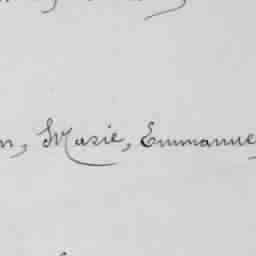 n, Marie, Emmanue